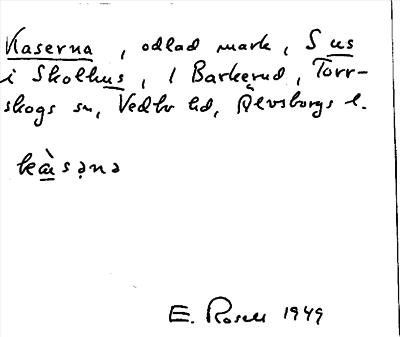 Kaserna, odlad mark, S us
i Skolhus, 1 Barkerud, Torr-
skogs sn, Vedbo hd, Älvsborgs l.
kæ̀sạnə
E. Rosell 1949